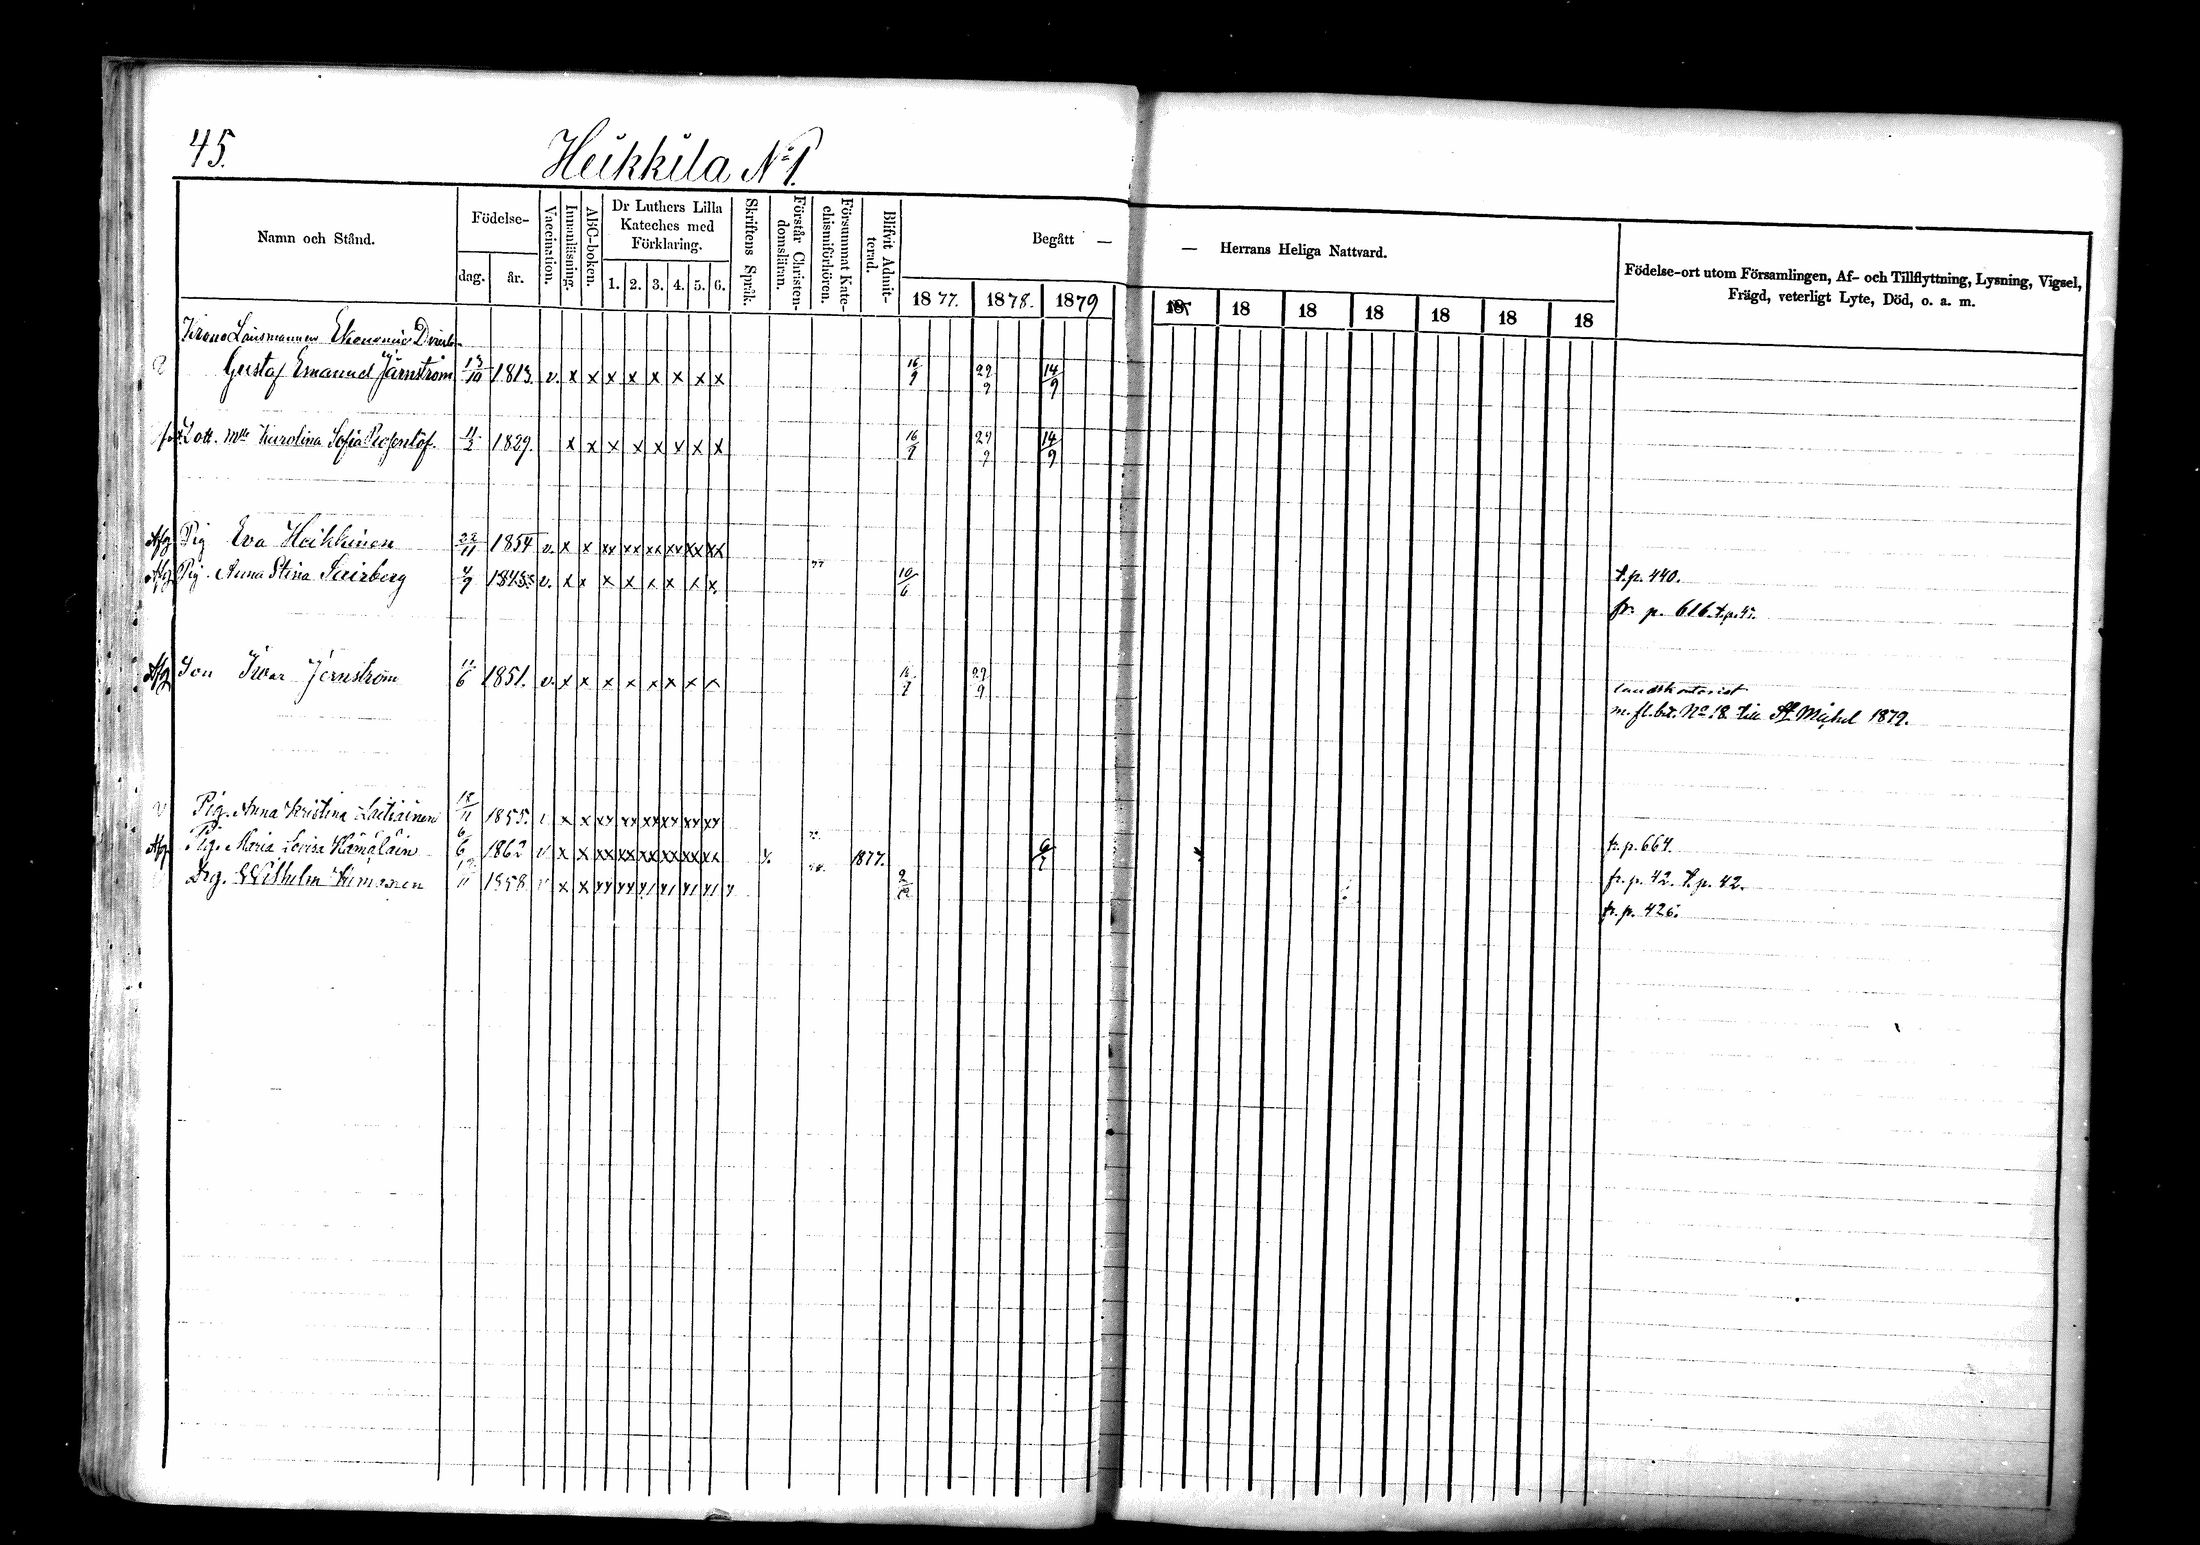 45.
Heikkila № 1.
Namn och Stånd.
Födelse-
dag.
år.
Vaccination.
Innanläsning.
ABC-boken.
Dr Luthers Lilla
Kateches med
Förklaring.
1. 2. 3. 4. 5. 6.
Skriftens Språk.
Förstår Christen-
domsläran.
Försummat Kate-
chismiförhören.
Blifvit Admit-
terad.
Begått — — Herrans Heliga Nattvard.
1877. 1878. 1879 18 18 18 18 18 18 18
Födelse-ort utom Församlingen, Af- och Tillflyttning, Lysning, Vigsel,
Frägd, veterligt Lyte, Död, o. a. m.
Krono Länsmannen Ekonomie
Gustaf Emanuel Järnström 13/10 1813. v. x x x x x x x x 16/9 29/9 14/9
Karolina Sofia 11/2 1829. x x x x x x x x 16/9 29/9 14/9
Afg Pig Eva Heikkinen 22/11 1854 v. x x xx xx xx xx xx xx
Afg Pig. Anna Stina 4/9 v. x x x x x x x x 77 10/6 t. p. 440.
fr. p. 616. t. p. 45.
Afg Son Ivar Jernström 11/6 1851. v. x x x x x x x x 16/9 29/9
landskontorist
m. fl. bet. No 18 till St Michel 1879.
v Pig. Anna Kristina Laitiainen 18/11 1855. v x x xx xx xx xx xx xx
Afg Pig. Maria Lovisa Hämäläin 6/6 1862 v x x xx xx xx xx xx xx 1877. 6/7 fr. p. 664.
Drg. Wilhelm Kimonen 1858 v x x fr. p. 42. t. p. 42.
fr. p. 426.